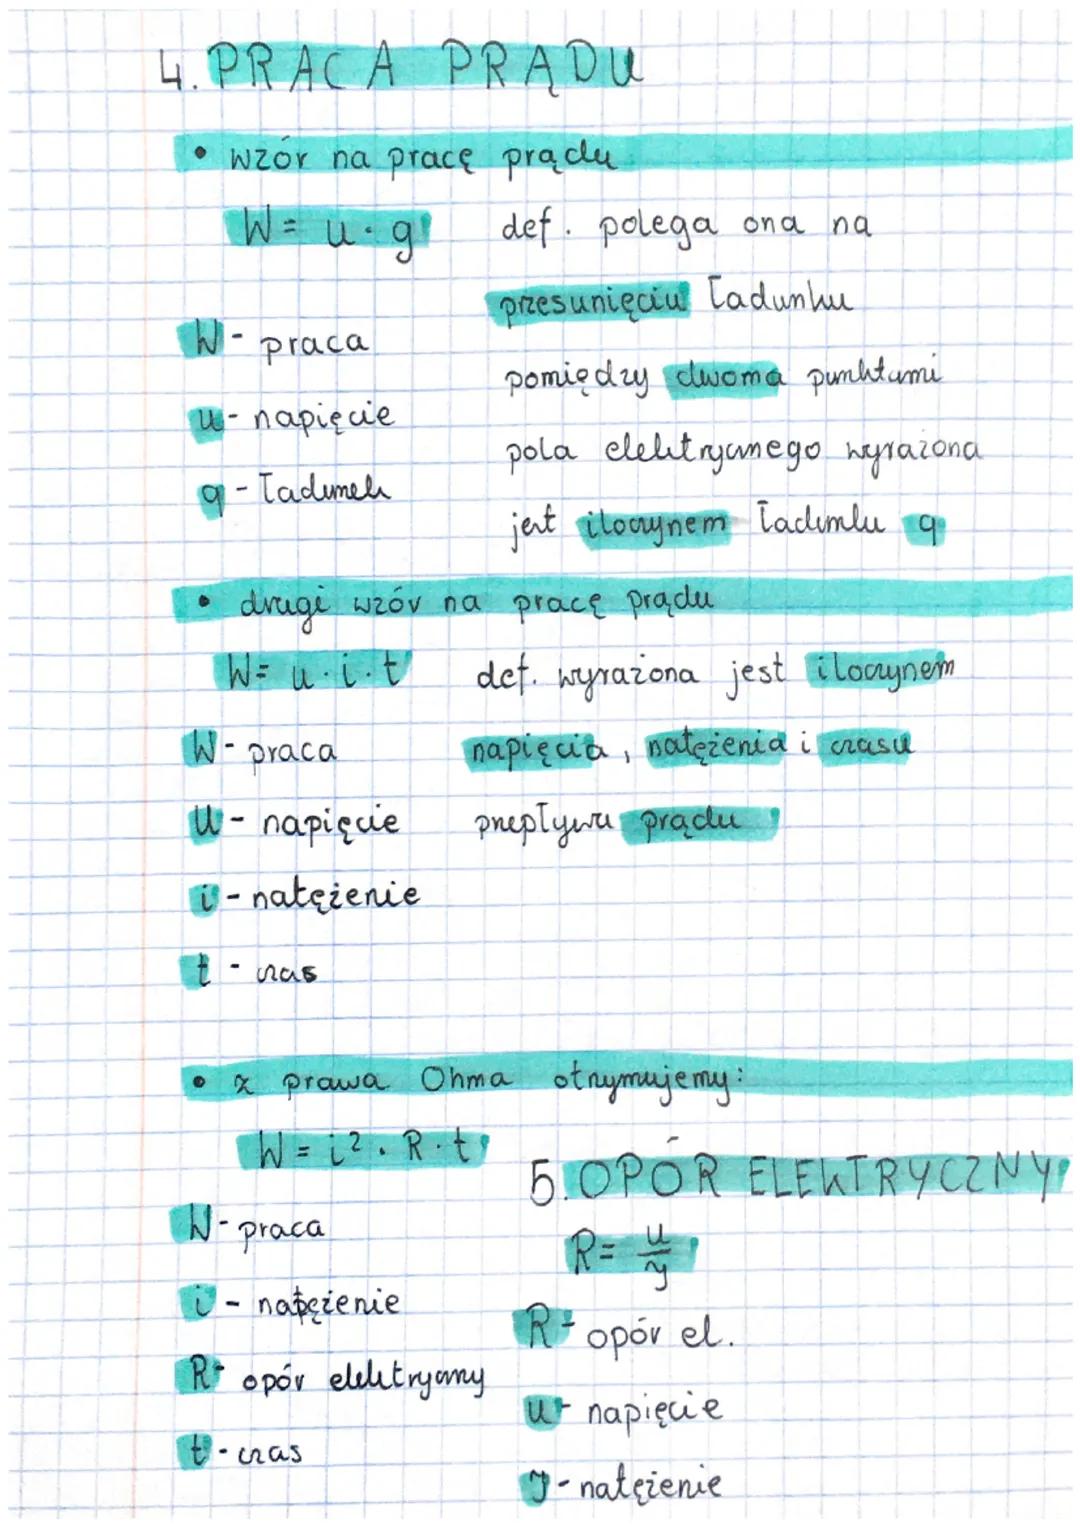 4. PRACA PRĄDU
• wzór na pracę prądu
W = u · q
def. polega ona na
przesunięciu ładunku
pomiędzy dwoma punktami
pola elektrycznego wyrażona
jest iloczynem ładunku q
W - praca
u - napięcie
q - ładunek
• drugi wzór na pracę prądu
W = u · i · t
def. wyrażona jest iloczynem
napięcia, natężenia i czasu
przepływu prądu
W - praca
U - napięcie
i - natężenie
t - czas
• z prawa Ohma otrzymujemy:
W = i² · R · t
W - praca
i - natężenie
R - opór elektryczny
t - czas
5. OPÓR ELEKTRYCZNY
R = u/J
R - opór el.
u - napięcie
J - natężenie